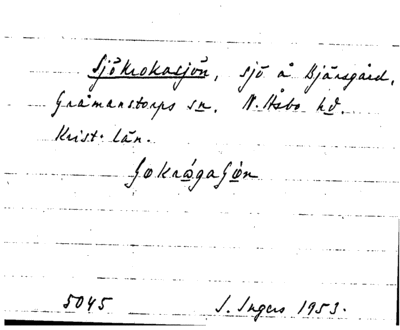 Sjökrokasjön, sjö å Bjärsgård,
Gråmanstorps sn. N. Åsbo hd.
Krist. län.
ʃøkrǫ́gaʃø̀n
5045 I. Ingers 1953.